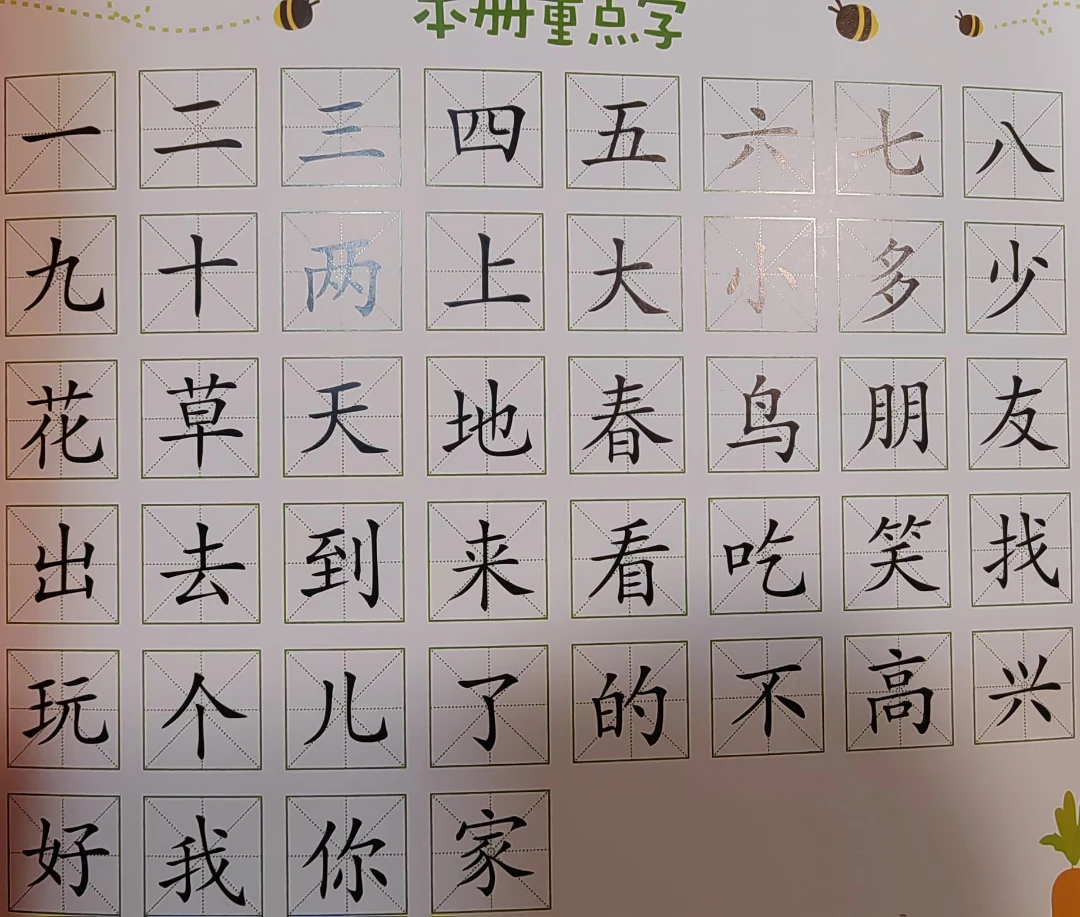 本册重点字
一 二 三 四 五 六 七 八
九 十 两 上 大 小 多 少
花 草 天 地 春 鸟 朋 友
出 去 到 来 看 吃 笑 找
玩 个 儿 了 的 不 高 兴
好 我 你 家